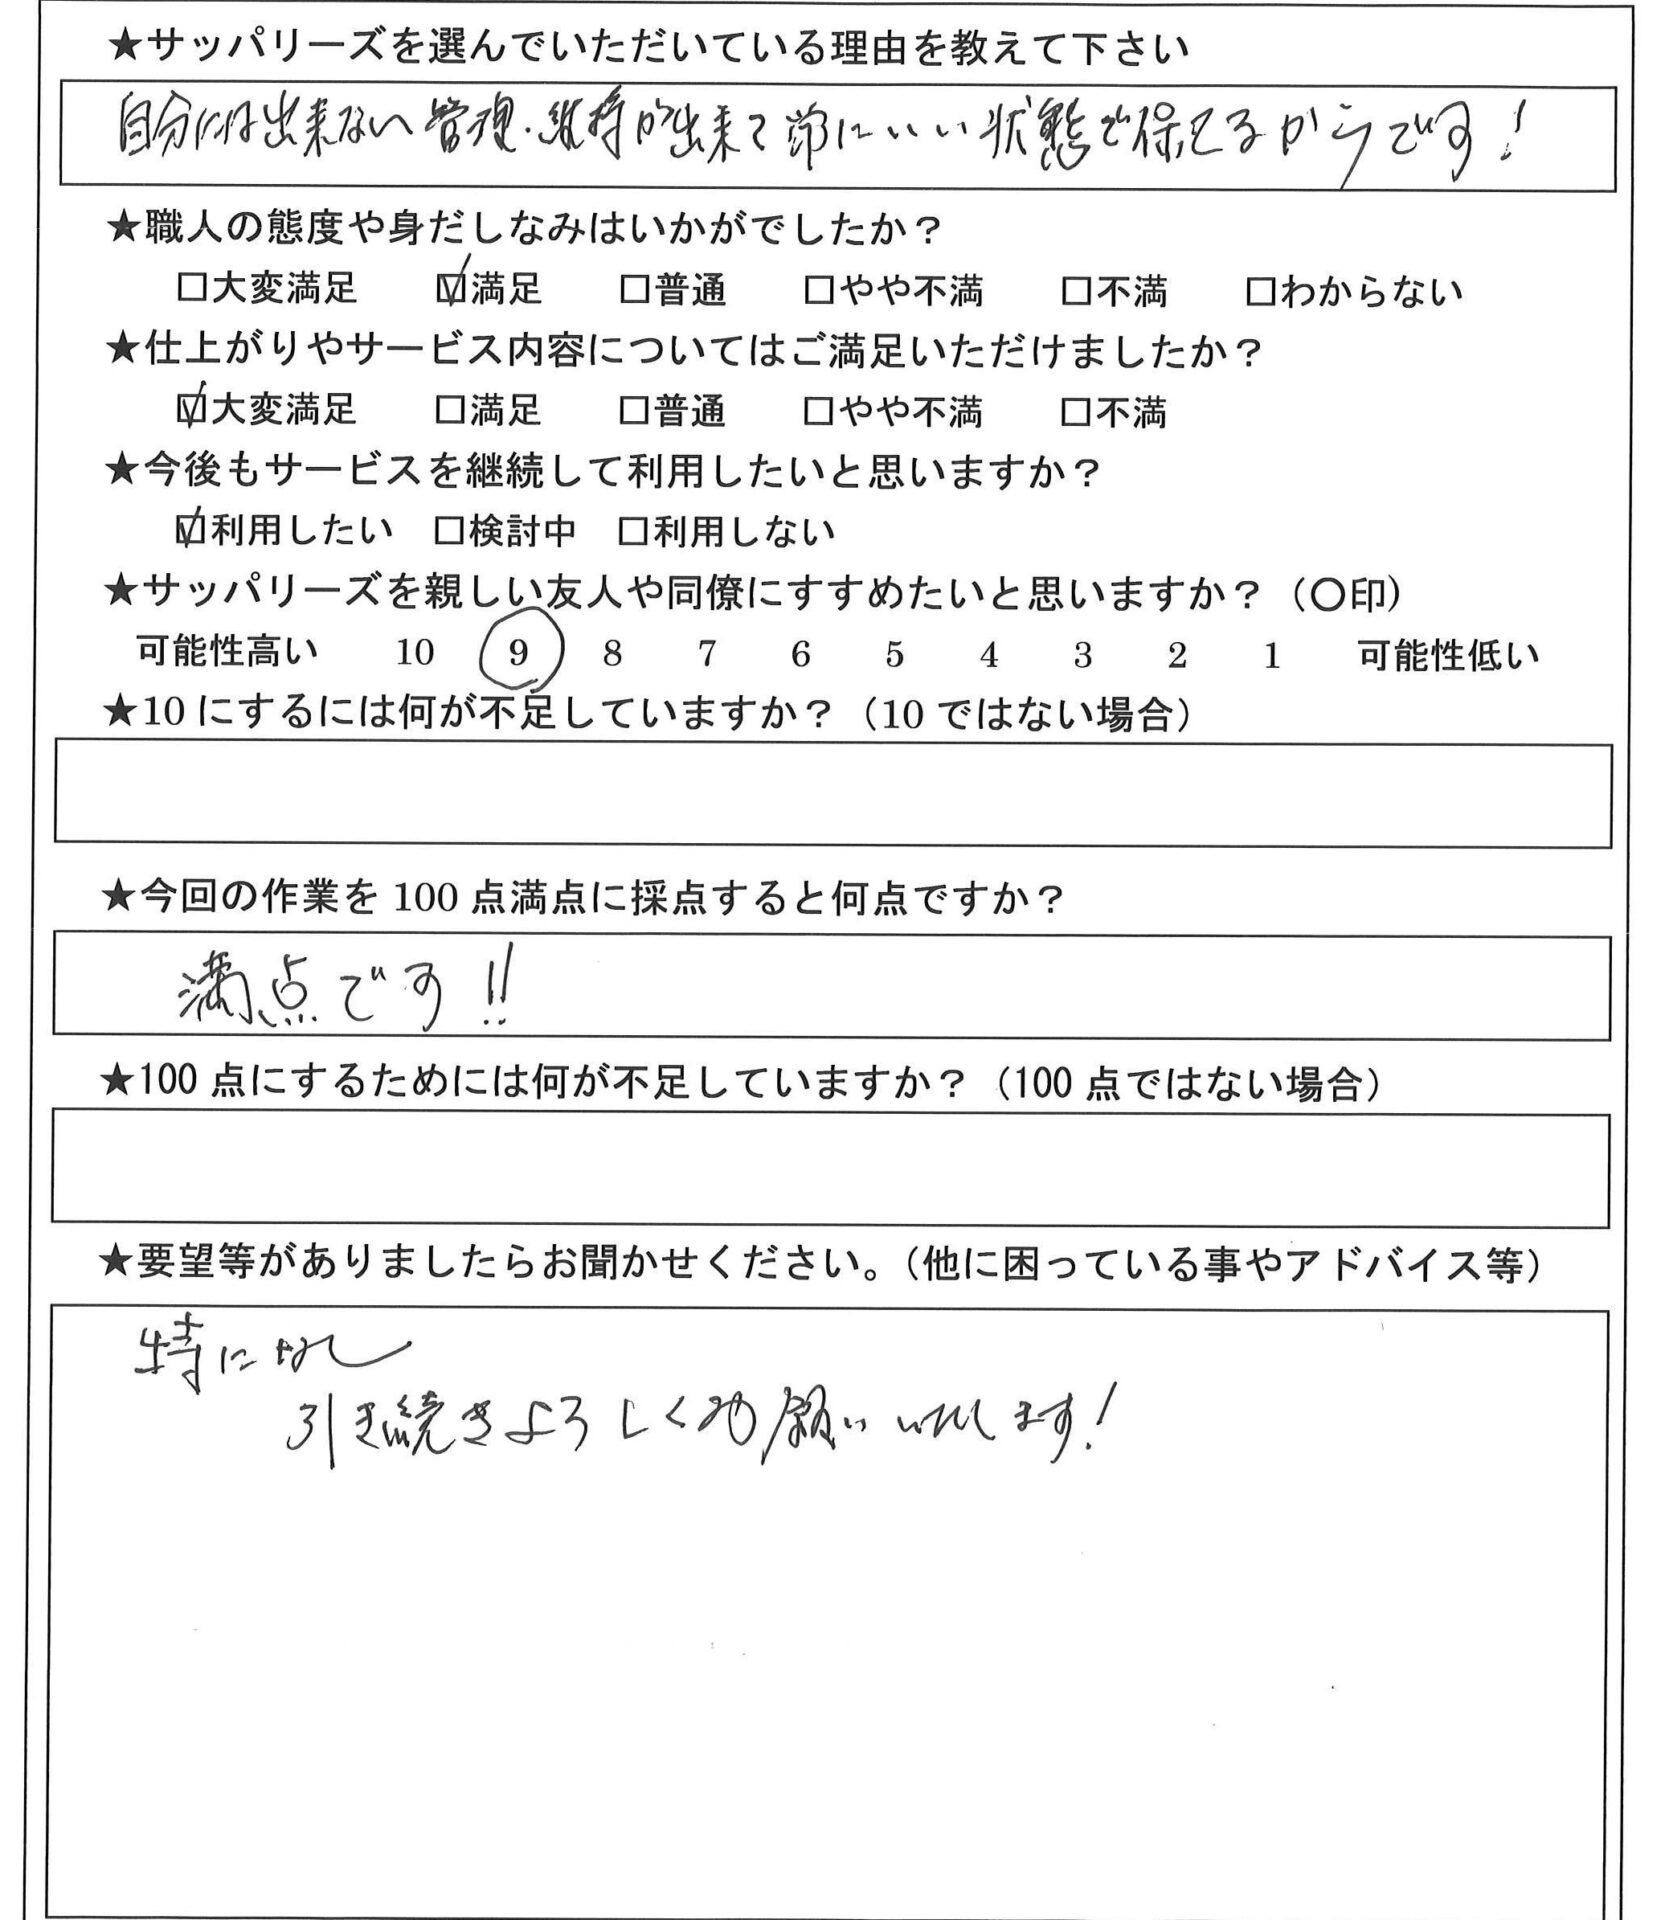 ★サッパリーズを選んでいただいている理由を教えて下さい
自分には出来ない管理・維持が出来て常にいい状態で保てるからです！
★職人の態度や身だしなみはいかがでしたか？
□大変満足 ☑満足 □普通 □やや不満 □不満 □わからない
★仕上がりやサービス内容についてはご満足いただけましたか？
☑大変満足 □満足 □普通 □やや不満 □不満
★今後もサービスを継続して利用したいと思いますか？
☑利用したい □検討中 □利用しない
★サッパリーズを親しい友人や同僚にすすめたいと思いますか？（〇印）
可能性高い 10 9 8 7 6 5 4 3 2 1 可能性低い
★10にするには何が不足していますか？（10ではない場合）
★今回の作業を100点満点に採点すると何点ですか？
満点です!!
★100点にするためには何が不足していますか？（100点ではない場合）
★要望等がありましたらお聞かせください。（他に困っている事やアドバイス等）
特になし
引き続きよろしくお願いいたします！